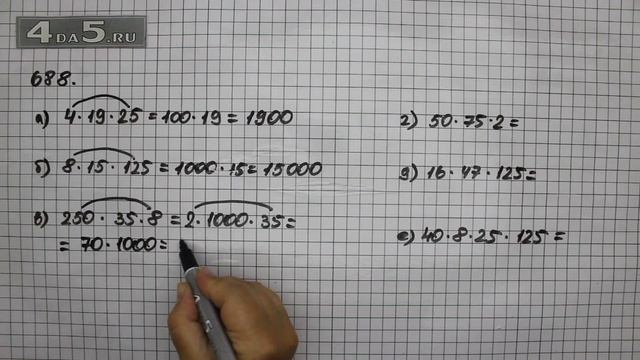 4ДА5.RU
688.
а) 4·19·25 = 100·19 = 1900
б) 8·15·125 = 1000·15 = 15000
в) 250·35·8 = 2·1000·35 =
= 70·1000 =
г) 50·75·2 =
д) 16·47·125 =
е) 40·8·25·125 =